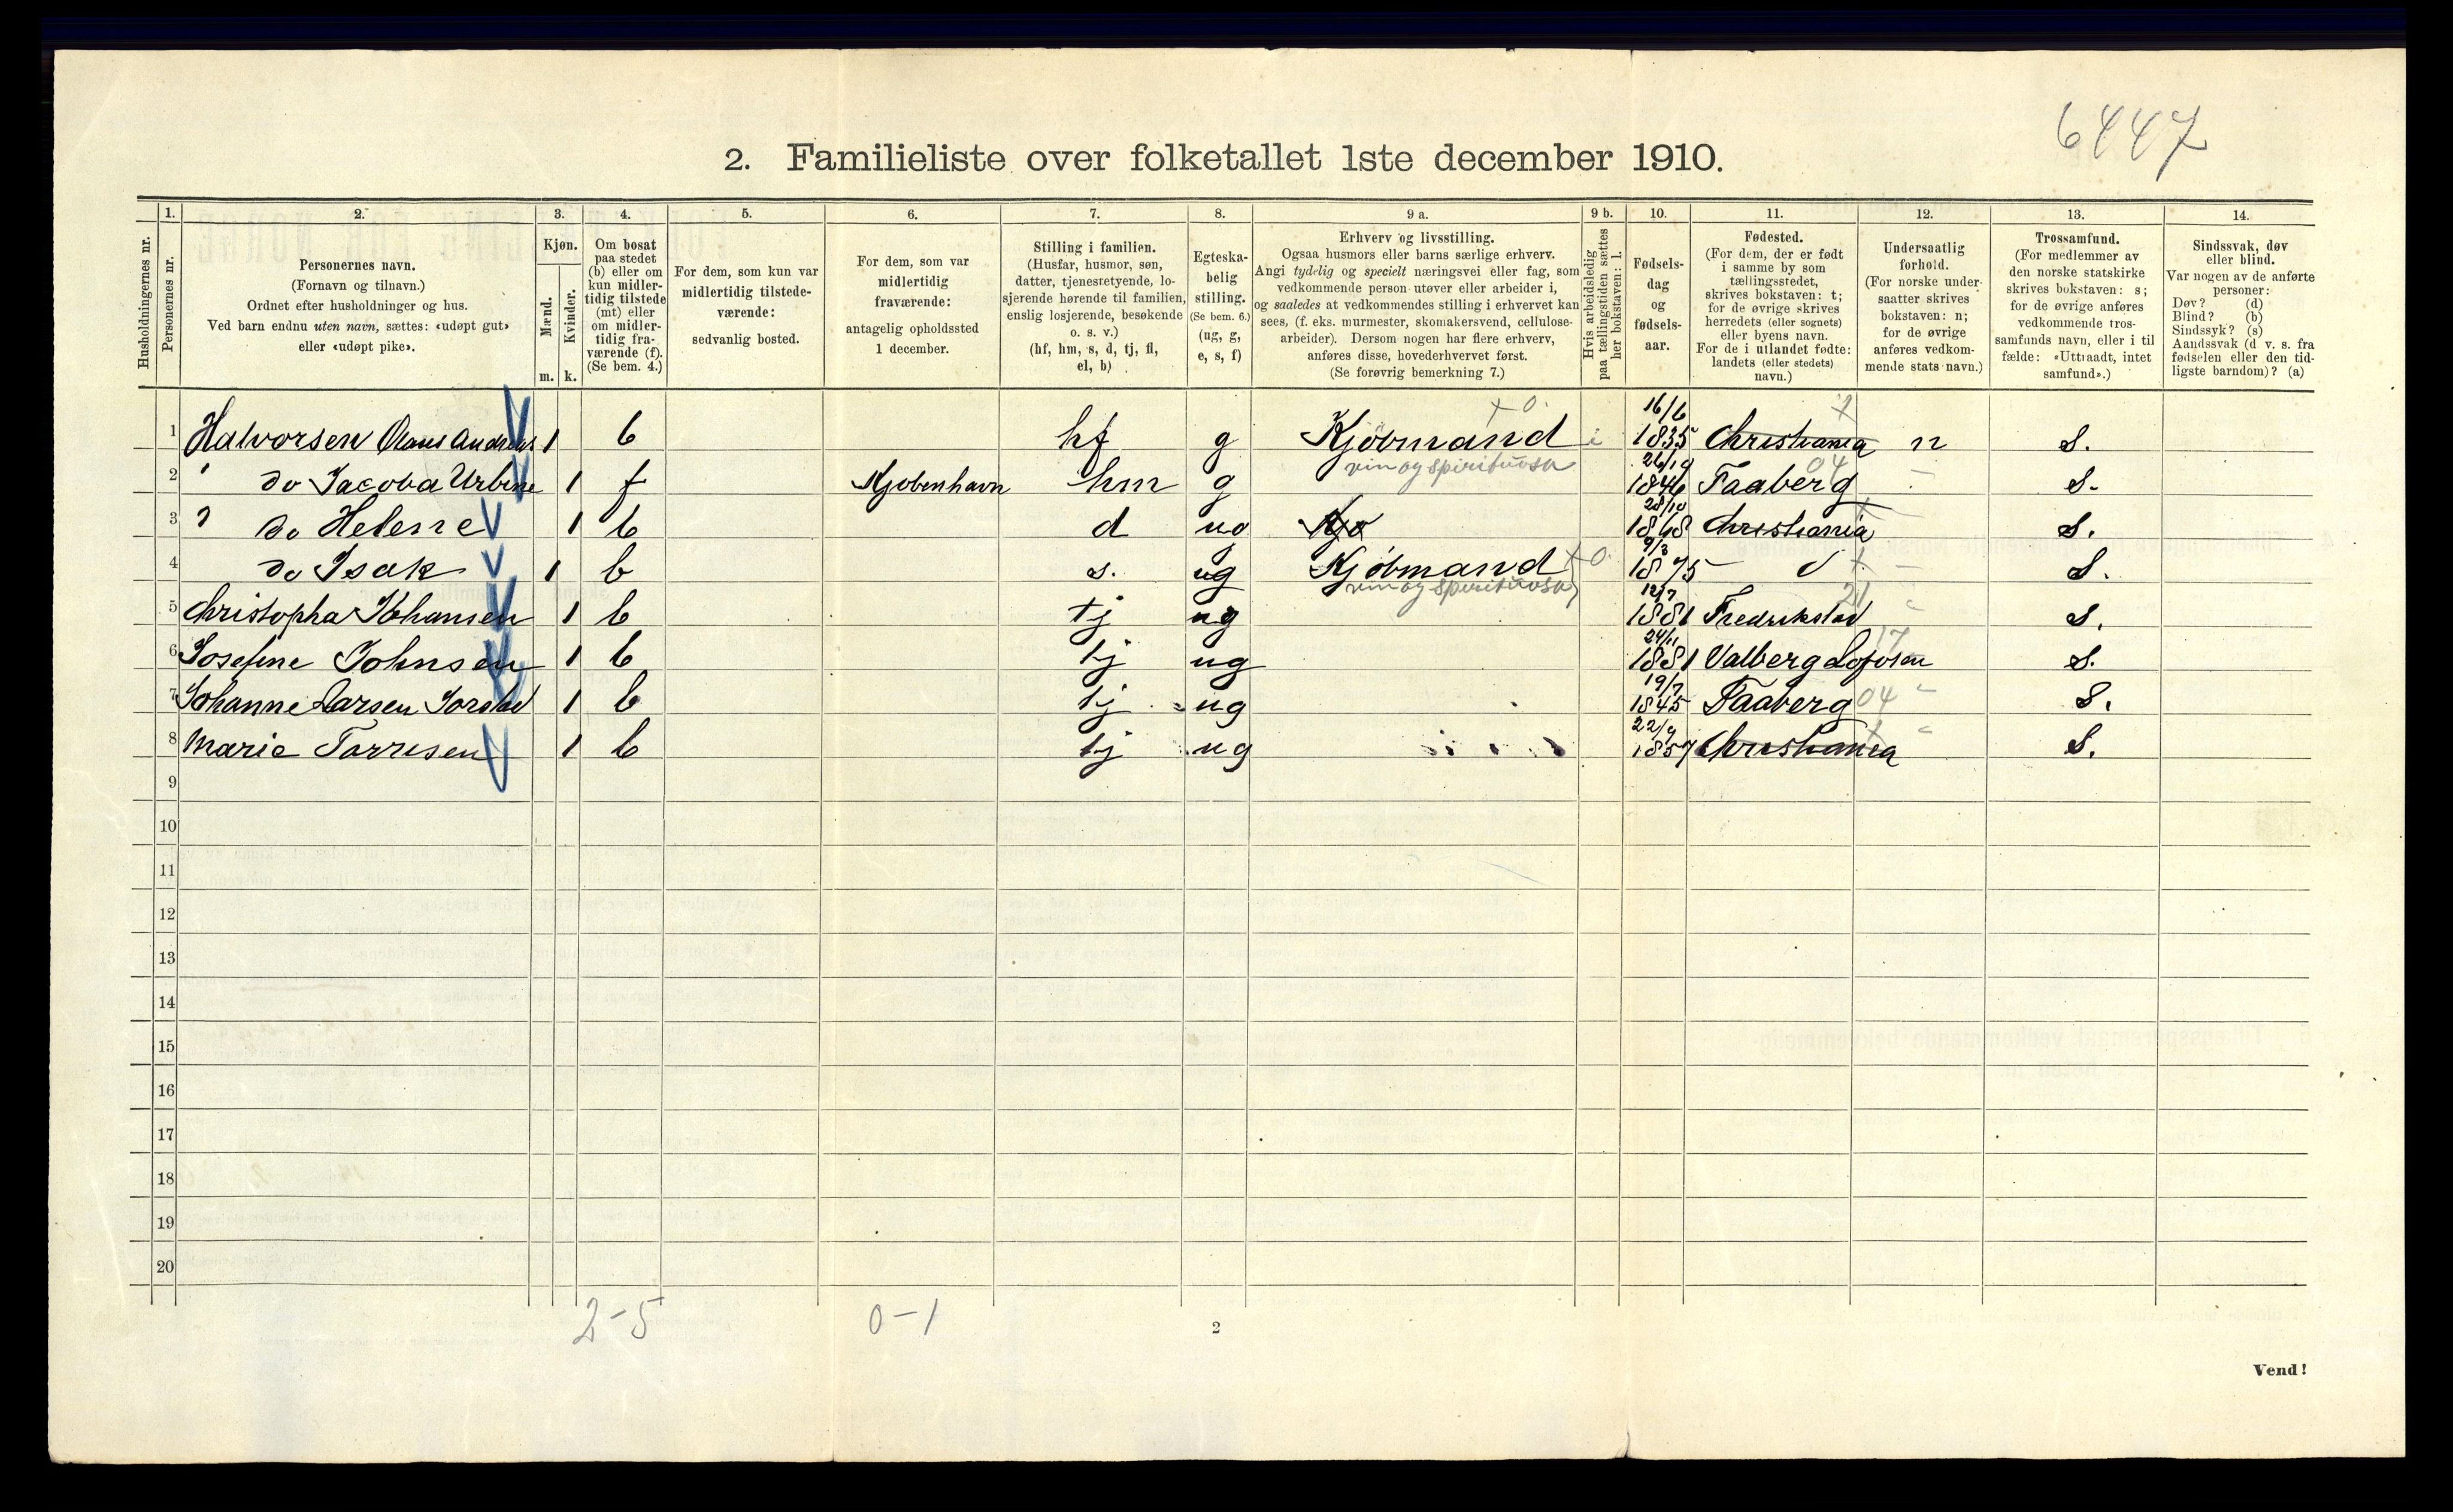 6447
2. Familieliste over folketallet 1ste december 1910.
Husholdningernes nr.
1. Personernes nr.
2. Personernes navn.
(Fornavn og tilnavn.)
Ordnet efter husholdninger og hus.
Ved barn endnu uten navn, sættes: «udøpt gut»
eller «udøpt pike».
3. Kjøn.
Mænd. Kvinder.
m. k.
4. Om bosat
paa stedet
(b) eller om
kun midler-
tidig tilstede
(mt) eller
om midler-
tidig fra-
værende (f).
(Se bem. 4.)
5. For dem, som kun var
midlertidig tilstede-
værende:
sedvanlig bosted.
6. For dem, som var
midlertidig
fraværende:
antagelig opholdssted
1 december.
7. Stilling i familien.
(Husfar, husmor, søn,
datter, tjenestetyende, lo-
sjerende hørende til familien,
enslig losjerende, besøkende
o. s. v.)
(hf, hm, s, d, tj, fl,
el, b)
8. Egteska-
belig
stilling.
(Se bem. 6.)
(ug, g,
e, s, f)
9 a. Erhverv og livsstilling.
Ogsaa husmors eller barns særlige erhverv.
Angi tydelig og specielt næringsvei eller fag, som
vedkommende person utøver eller arbeider i,
og saaledes at vedkommendes stilling i erhvervet kan
sees, (f. eks. murmester, skomakersvend, cellulose-
arbeider). Dersom nogen har flere erhverv,
anføres disse, hovederhvervet først.
(Se forøvrig bemerkning 7.)
9 b. Hvis arbeidsledig
paa tællingstiden sættes
her bokstaven: l.
10. Fødsels-
dag
og
fødsels-
aar.
11. Fødested.
(For dem, der er født
i samme by som
tællingsstedet,
skrives bokstaven: t;
for de øvrige skrives
herredets (eller sognets)
eller byens navn.
For de i utlandet fødte:
landets (eller stedets)
navn.)
12. Undersaatlig
forhold.
(For norske under-
saatter skrives
bokstaven: n;
for de øvrige
anføres vedkom-
mende stats navn.)
13. Trossamfund.
(For medlemmer av
den norske statskirke
skrives bokstaven: s;
for de øvrige anføres
vedkommende tros-
samfunds navn, eller i til-
fælde: «Uttraadt, intet
samfund».)
14. Sindssvak, døv
eller blind.
Var nogen av de anførte
personer:
Døv? (d)
Blind? (b)
Sindssyk? (s)
Aandssvak (d. v. s. fra
fødselen eller den tid-
ligste barndom)? (a)
1 Halvorsen Olaus Andreas 1 b hf g Kjöbmand x 0. 16/6 1835 Christiania n S.
vin og spirituosa
2 do Jacoba Urbine 1 f Kjøbenhavn hm g 1846 Faaberg 04 S.
3 do Helene 1 b d ug Kjø 28/10 1868 Christiania S.
4 do Isak 1 b s. ug Kjöbmand x 0 9/3 1875 S.
vin og spirituosa
5 Christopha Johansen 1 b tj ug 12/7 1881 Fredrikstad 21 S.
6 Josefine Johnsen 1 b tj ug 24/11 1881 Valberg Lofoten 17 S.
7 Johanne Larsen Jorstad 1 b tj ug 19/7 1845 Faaberg 04 S.
8 Marie Torrisen 1 b tj ug 22/9 1857 Christiania S.
9
10
11
12
13
14
15
16
17
18
19
20
2-5 0-1
2
Vend!